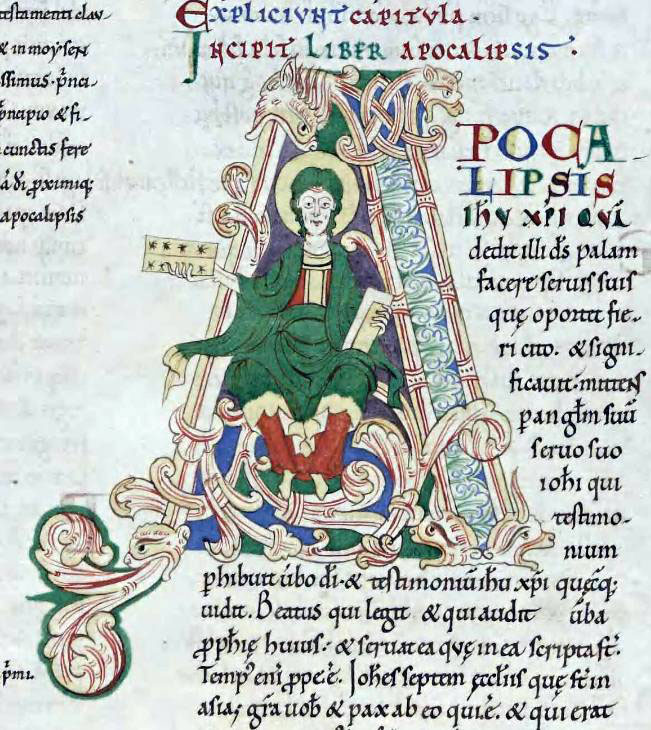 testamenti clau-
& in moysen
ssimus. p̄nci-
p̄ncipio & fi-
cunctis fere
di proximiq;
apocalipsis
p̄mi.
Expliciunt capitula
Incipit Liber apocalipsis.
APOCA-
LIPSIS
ihu xpi qui
dedit illi d̄s palam
facere seruis suis
quę oportet fie-
ri cito. & signi-
ficauit. mittens
p angl̄m suū
seruo suo
ioh̄i qui
testimo-
nium
phibuit ūbo d̄i. & testimoniū ihu xpi quęcq;
uidit. Beatus qui legit & qui audit ūba
p̱ph̄ię huius. & seruat ea quę in ea scripta st̄.
Temp' eni ꝓpe ē. Joh̄es septem ęcclīis quę st̄ in
asia; grā uob̄ & pax ab eo qui ē. & qui erat